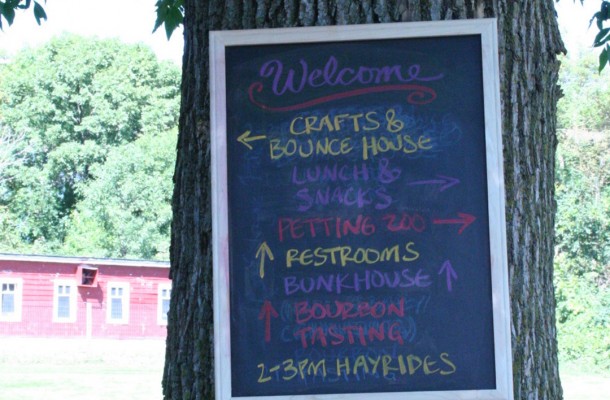 Welcome
CRAFTS &
BOUNCE HOUSE
LUNCH &
SNACKS
PETTING ZOO
RESTROOMS
BUNKHOUSE
BOURBON
TASTING
2-3PM HAYRIDES